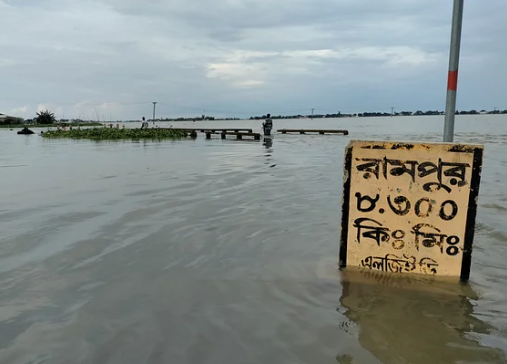 রামপুর
৮.৩০০
কিঃ মিঃ
এলজিইডি